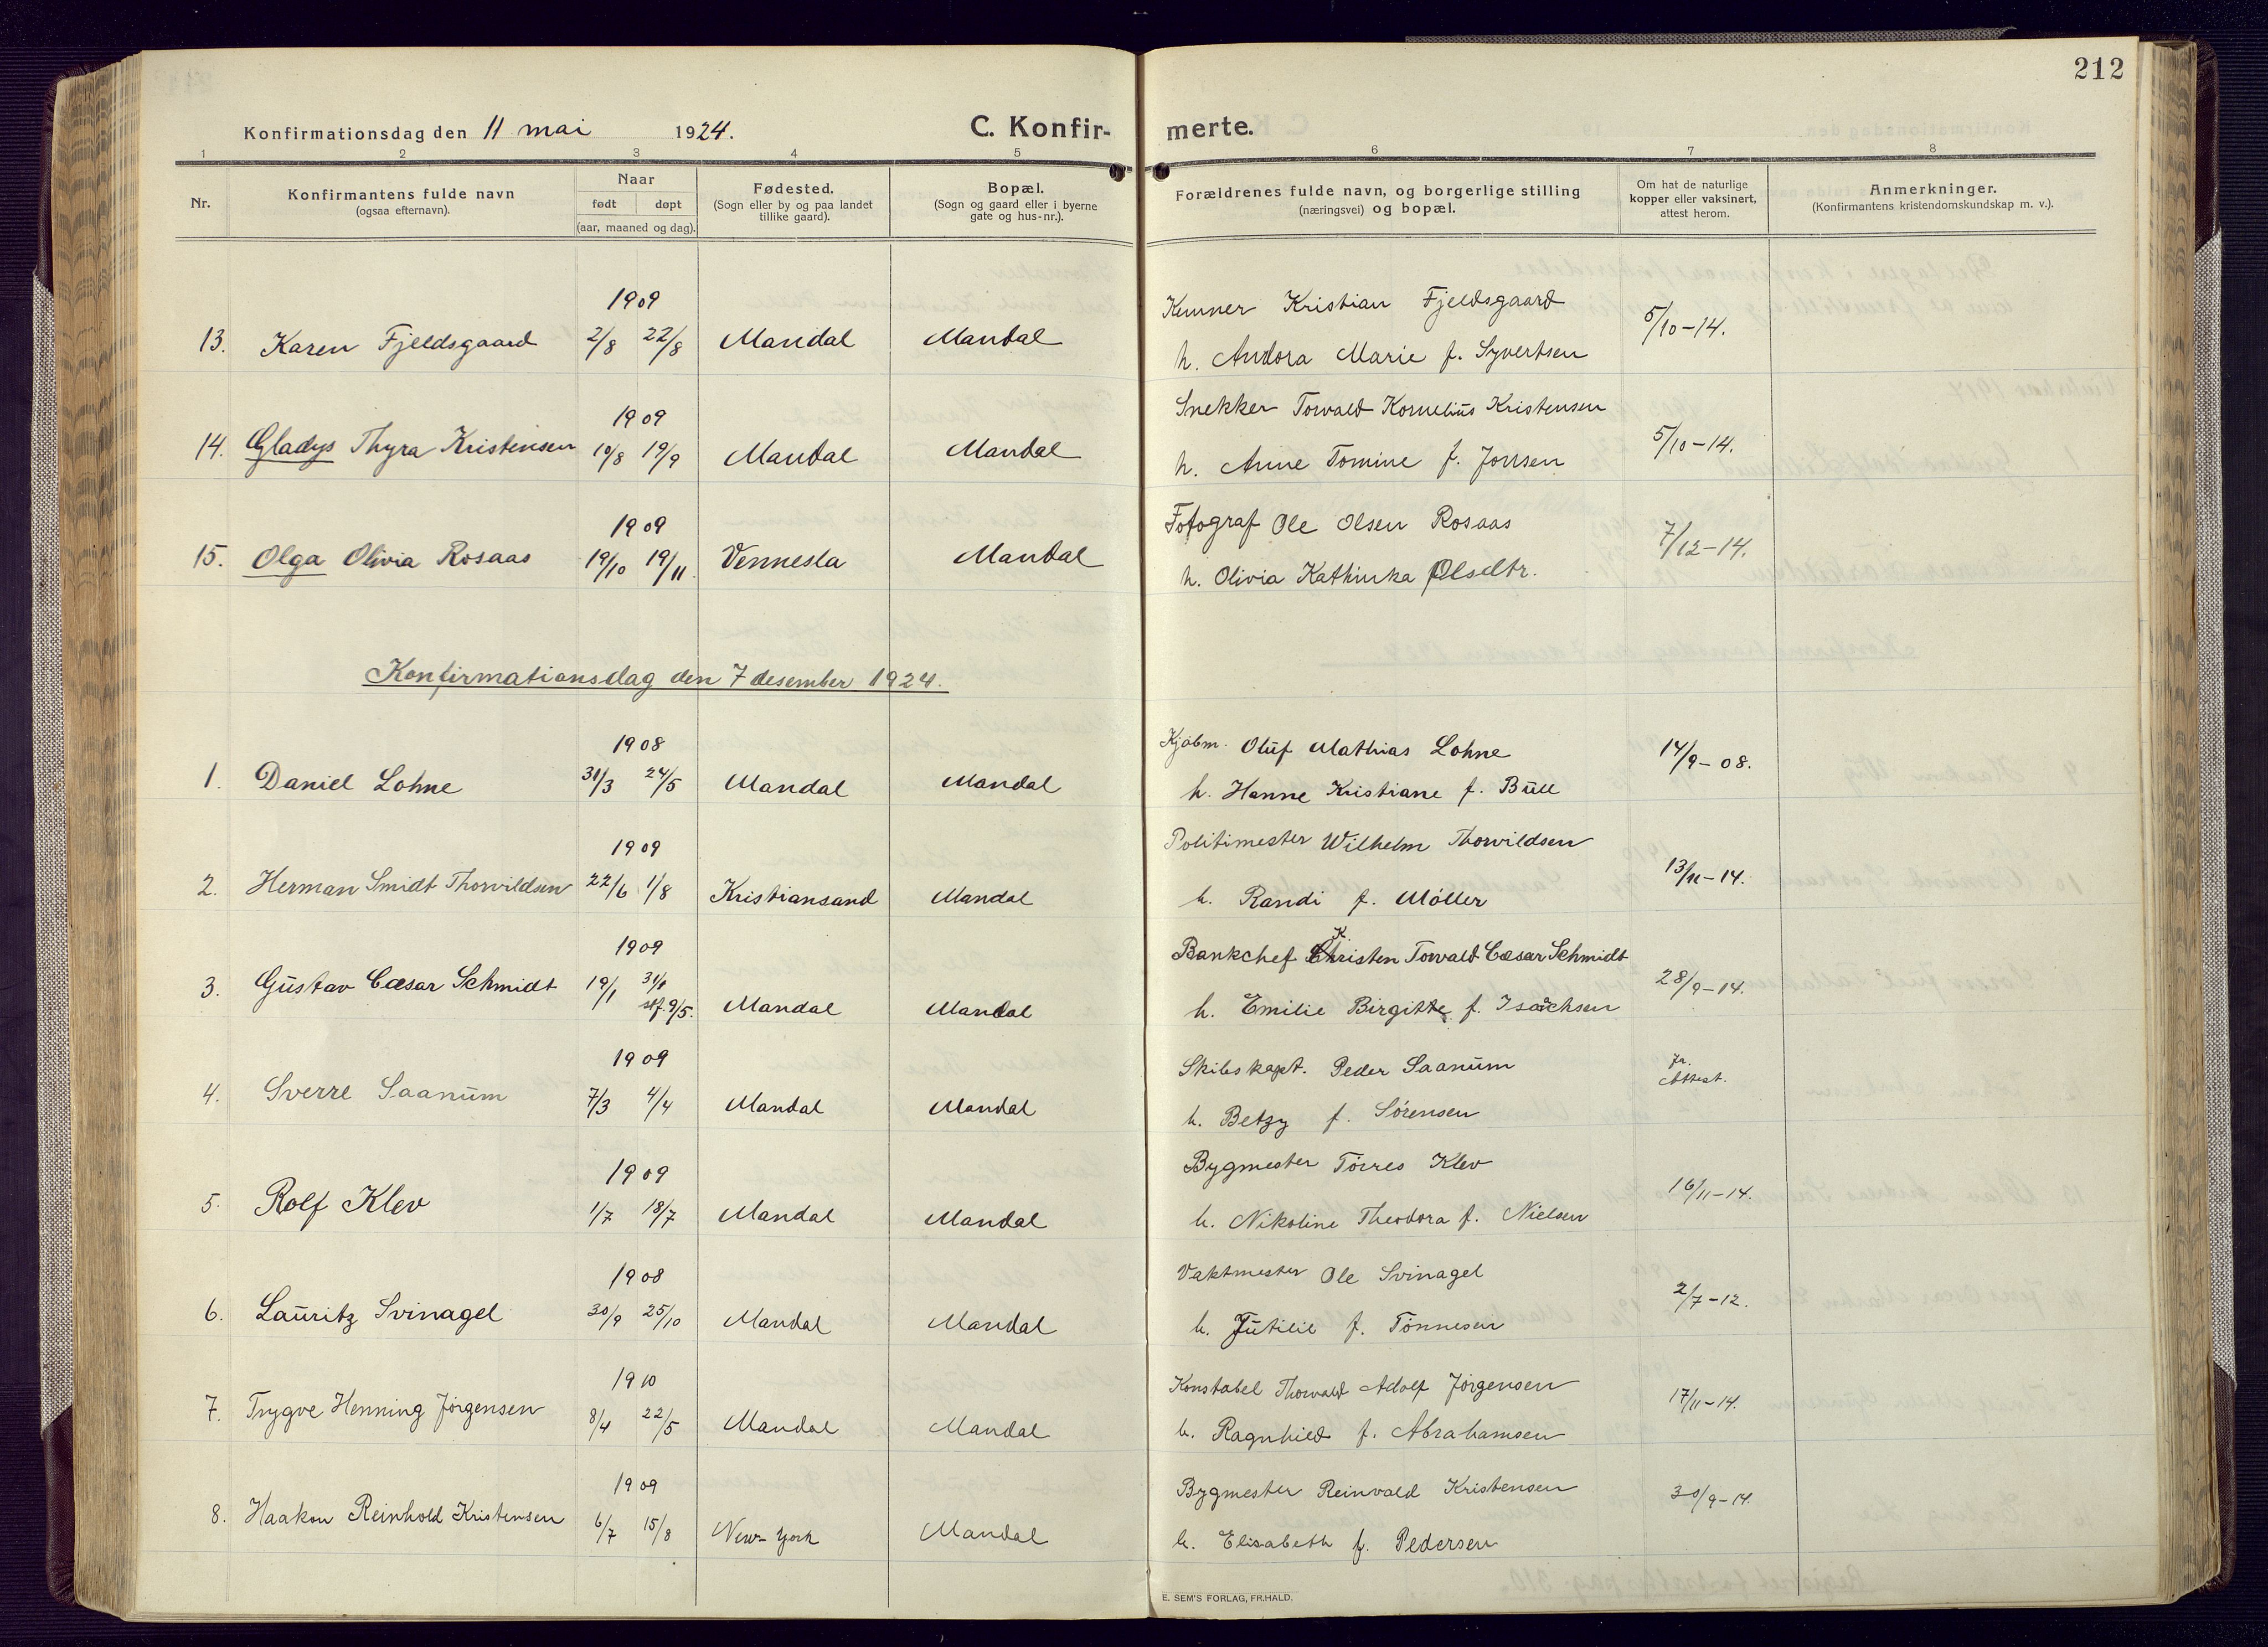 212
Konfirmationsdag den 11 mai 1924.
C. Konfir- merte.
1 2 3 4 5 6 7 8
Nr.
Konfirmantens fulde navn
(ogsaa efternavn).
Naar
født døpt
(aar, maaned og dag).
Fødested.
(Sogn eller by og paa landet
tillike gaard).
Bopæl.
(Sogn og gaard eller i byerne
gate og hus-nr.).
Forældrenes fulde navn, og borgerlige stilling
(næringsvei) og bopæl.
Om hat de naturlige
kopper eller vaksinert,
attest herom.
Anmerkninger.
(Konfirmantens kristendomskundskap m. v.).
1909
13. Karen Fjeldsgaard 2/8 22/8 Mandal Mandal
Kemner Kristian Fjeldsgaard
h. Andora Marie f. Syvertsen
5/10-14.
1909
14. Gladys Thyra Kristensen 10/8 19/9 Mandal Mandal
Snekker Torvald Kornelius Kristensen
h. Anne Tomine f. Jonsen
5/10-14.
1909
15. Olga Olivia Rosaas 19/10 19/11. Vennesla Mandal
Fotograf Ole Olsen Rosaas
h. Olivia Kathinka Olsdtr.
7/12-14.
Konfirmationsdag den 7 desember 1924.
1908
1. Daniel Lohne 31/3 24/5 Mandal Mandal
Kjøbm. Oluf Mathias Lohne
h. Hanne Kristiane f. Bull
14/9-08.
1909
2. Herman Smidt Thorvildsen 22/6 1/8 Kristiansand Mandal
Politimester Wilhelm Thorvildsen
h. Randi f. Møller
13/11-14.
1909
3. Gustav Cæsar Schmidt 19/1 31/1
stf. 9/5. Mandal Mandal
K.
Bankchef Christen Torvald Cæsar Schmidt
h. Emilie Birgitte f. Isachsen
28/9-14.
1909
4. Sverre Saanum 7/3 4/4 Mandal Mandal
Skibskapt. Peder Saanum
h. Betzy f. Sørensen
Attest.
1909
5. Rolf Klev 1/7 18/7 Mandal Mandal
Bygmester Tørres Klev
h. Nikoline Theodora f. Nielsen
16/11-14.
1908
6. Lauritz Svinagel 30/9 25/10 Mandal Mandal
Vaktmester Ole Svinagel
h. Jutilie f. Tønnesen
2/7-12.
1910
7. Trygve Henning Jørgensen 8/4 22/5 Mandal Mandal
Konstabel Thorvald Adolf Jørgensen
h. Ragnhild f. Abrahamsen
17/11-14.
1909
8. Haakon Reinhold Kristensen 6/7 15/8 New-York Mandal
Bygmester Reinvald Kristensen
h. Elisabeth f. Pedersen
30/9-14.
E. SEM'S FORLAG, FR.HALD.